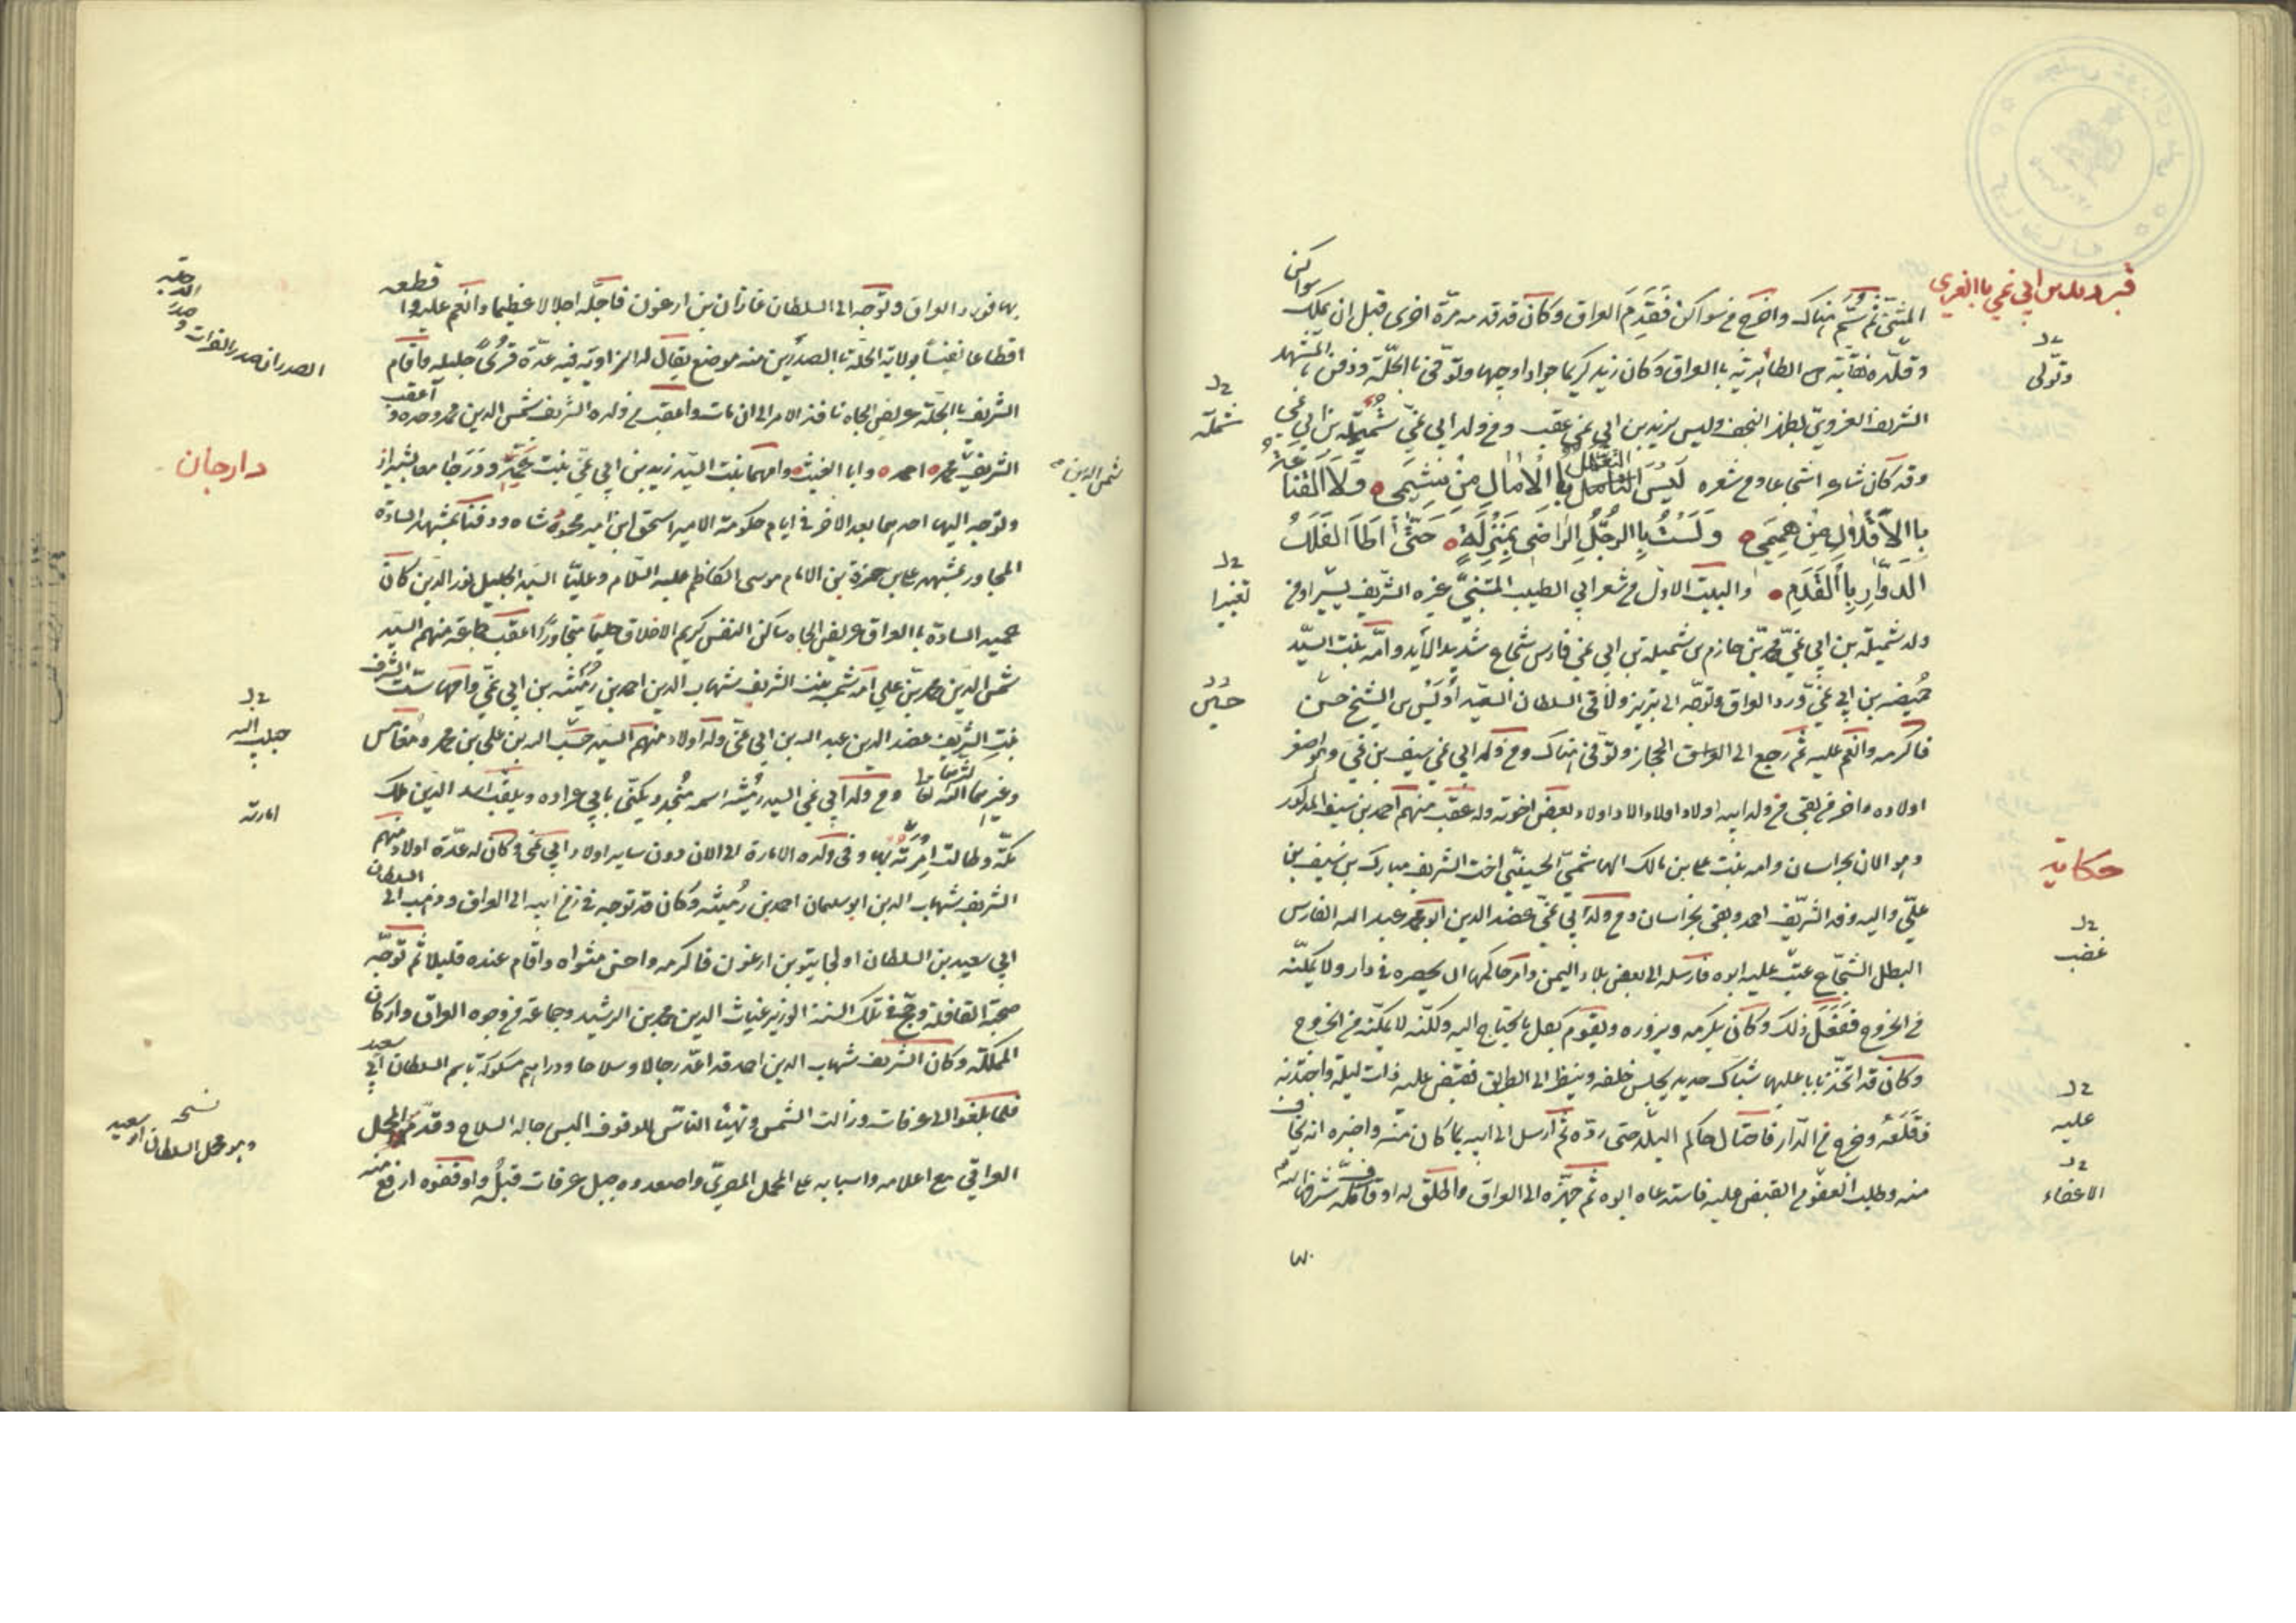 قبر زيد بن ابي نمي بالغري
المثنى ثم سُمّ هناك واخرج من سواكن فَقَدِمَ العراق وكان قد قدمه مرة اخرى قبل ان يملك سواكن
وتولى
وقلّده نقابة الطاهرية بالعراق وكان زيد كريما جوادا وجيها وتوفى بالحلّة ودفن بالمشهد
الشريف الغروى بظهر النجف وليس لزيد بن ابي نمي عقب ومن ولد ابي نمي شُميلة بن ابي نمي
شملة
وقد كان شاعرا شجاعا ومن شعره لَيْسَ التعلل بِالآمَالِ مِنْ شِيَمِي وَلاَ الْقَنَاعَةُ
بِالاَقْلَالِ مِنْ هِمَمِي وَلَسْتُ بِالرَّجُلِ الرَاضِي بِمَنْزِلَةٍ حَتَّى اَطَأَ الفَلَكَ
الدَوَّارَ بِالْقَدَمِ والبيت الاول من شعر ابي الطيب المتنبي غيره الشريف يسيرا ومن
تغييرا
ولد شميلة بن ابي نمي محمد بن حازم بن شميلة بن ابي نمي فارس شجاع شديد الأيد وامه بنت السيد
حُميضه بن ابي نمي ورد العراق وتوجّه الى تبريز ولاقى السلطان السعيد اُوَيس بن الشيخ حسن
حسين
فاكرمه وانعم عليه ثم رجع الى العراق الحجاز وتوفى هناك ومن ولد ابي نمي سيف بن ابي نمي وهو اصغر
اولاده واخر من بقى من ولد ابيه اولاد اولاد الاد اولاد بعض اخوته وله عقب منهم احمد بن سيف المذكور
حكاية
وهو الان بخراسان وامه بنت علي بن مالك الهاشمي الحسيني اخت الشريف مبارك بن سيف بن
علي واليه وفد الشريف احمد وبقى بخراسان ومن ولد ابي نمي عضد الدين ابو محمد عبد الله الفارس
غضب
البطل الشجاع عتب عليه ابوه فارسله الى بعض بلاد اليمن وامر حاكمها ان يحصره في دار ولا يمكنه
من الخروج فَفَعَلَ ذلك وكان يكرمه ويزوره ويقوم بكل ما يحتاج اليه ولكنّه لا يمكنه من الخروج
وكان قد اتخذ بابا عليها شباك حديد يجلس خلفه وينظر الى الطريق فقبض عليه ذات ليلة واجتذبه
عليه
فقلعه وخرج من الدار فاحتال حاكم البلد حتى ردّه ثم ارسل الى ابيه بما كان منه واخبره انه يخاف
الاعضاء
منه وطلب العفو من القبض عليه فاستدعاه ابوه ثم جهّزه الى العراق واطلق له اوقاف مكّة شرفها الله
بها
بها فورد العراق وتوجّه الى السلطان غازان بن ارغون فاجلّه اجلالا عظيما وانعم عليه واقطعه
الصدران صدر الفرات و صدر الدجلة
اقطاعا نفيسا بولاية الحلّة بالصدرين منه موضع يقال له الزاوية فيه عدّة قُرىً جليله واقام
الشريف بالحلّة عريض الجاه نافذ الامر الى ان مات واعقب من ولده الشريف شمس الدين محمد وحده واعقب
شمس الدين
الشريف محمد احمد وابا الغيث وامهما بنت السيد زيد بن ابي نمي بنت عمه ودَرَجا معا بشيراز
دارجان
وتوجه اليها احدهما بعد الاخر في ايام حكومة الامير اسحق ابن امير محمود شاه ودفنا بمشهد السادة
المجاور بمشهد علي بن حمزة بن الامام موسى الكاظم عليه السلام وعليّا السيد الجليل نور الدين كان
عميد السادة بالعراق عريض الجاه ساكن النفس كريم الاخلاق حليما متجاوزا اعقب جماعة منهم السيد
شمس الدين محمد بن علي امه بنت الشريف شهاب الدين احمد بن رُميثه بن ابي نمي وامها ست الشرف
بنت الشريف عضد الدين عبد الله بن ابي نمي وله اولاد منهم السيد حسب الله بن علي بن محمد ومغامس
حبيب الله
وغيرهما كثرهما الله تعالى ومن ولد ابي نمي السيد رميثه اسمه مُنجد ويكنى بابي عراده ويلقب اسد الدين ملك
امارته
مكّة وطالت اِمْرته بها وفي ولده الامارة الى الان دون ساير اولاد ابي نمي وكان له عدّة اولاد منهم
الشريف شهاب الدين ابو سليمان احمد بن رُميثه وكان قد توجه في زمن ابيه الى العراق وذهب الى السلطان
ابي سعيد بن السلطان اولجايتو بن ارغون فاكرمه واحسن مثواه واقام عنده قليلا ثم توجّه
صحبة القافلة وحجّ في تلك السنة الوزير غياث الدين محمد بن الرشيد وجماعة من وجوه العراق واركان
المملكة وكان الشريف شهاب الدين احمد قد اعدّ رجالا وسلاحا ودراهم مسكوكة باسم السلطان ابي سعيد
فلما بلغوا الى عرفات وزالت الشمس وتهيئا الناس للوقوف البس رجاله السلاح وقدّم المحمل
نسخه
وهو محمل السلطان ابو سعيد
العراقي مع اعلامه واسبابه على المحمل المصري واصعدوه جبل عرفات قبله واوقفوه ارفع منه